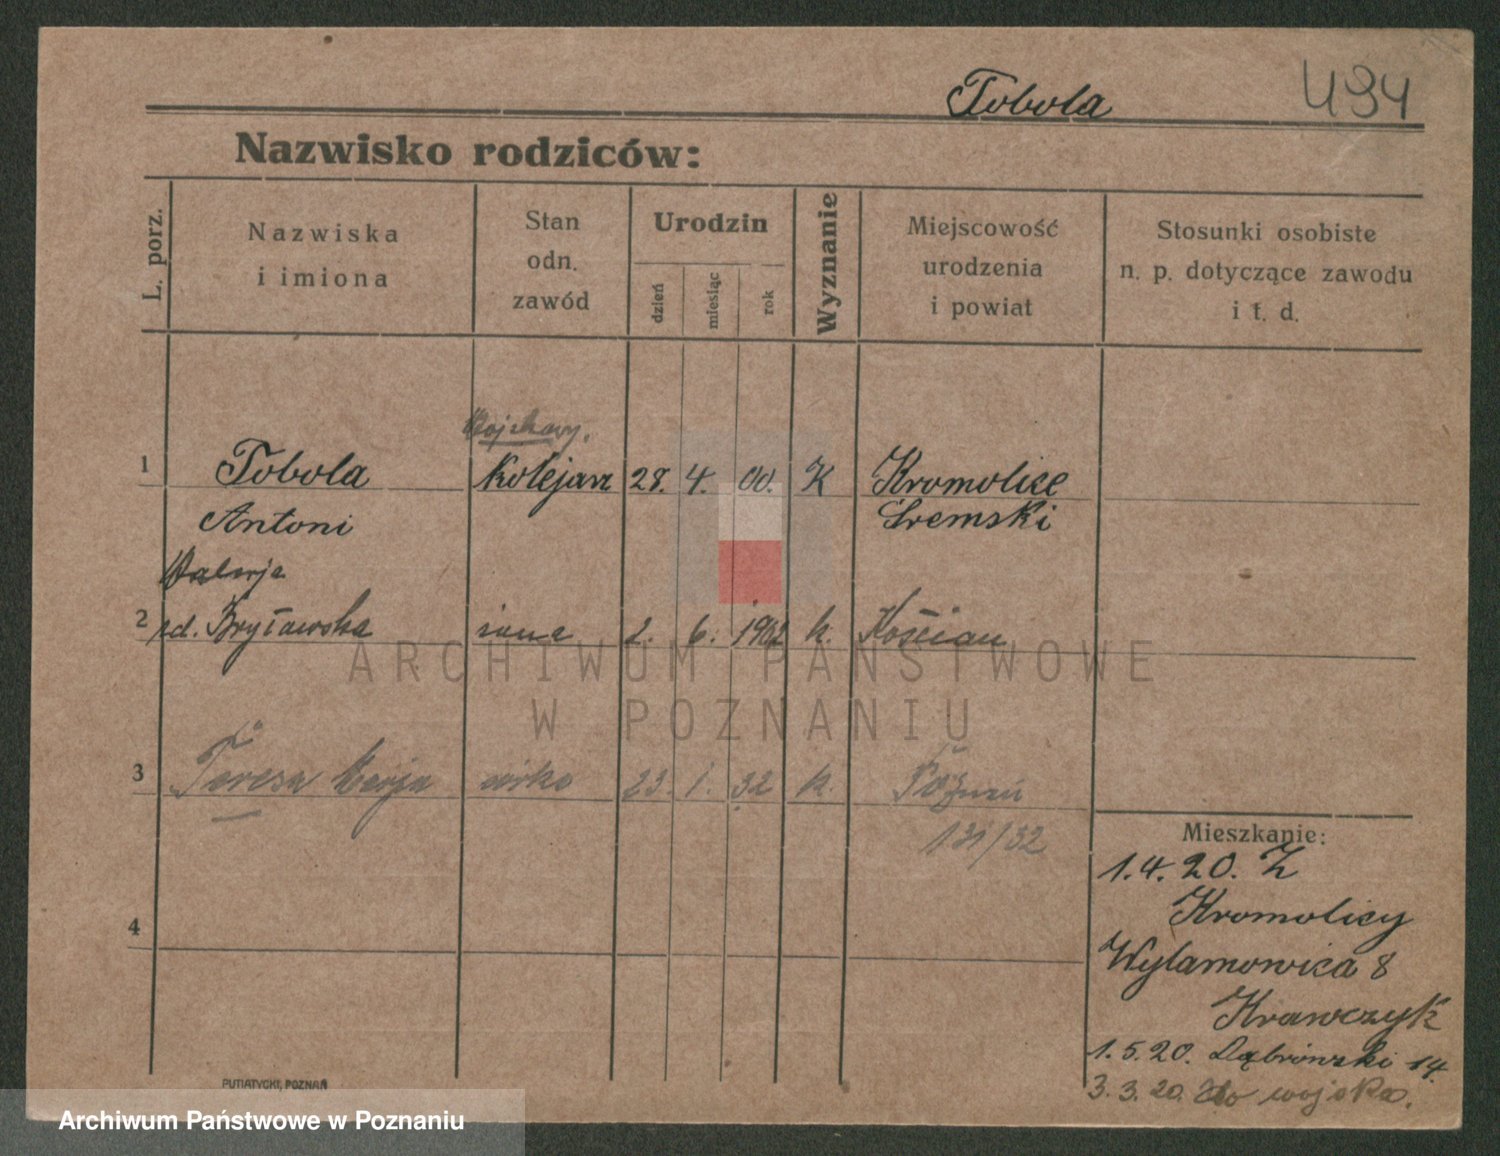 Tobola
494
Nazwisko rodziców:
L. porz.
Nazwiska
i imiona
Stan
odn.
zawód
Urodzin
dzień
miesiąc
rok
Wyznanie
Miejscowość
urodzenia
i powiat
Stosunki osobiste
n. p. dotyczące zawodu
i t. d.
1 Tobola kolejarz 28. 4. 00. K Kromolice
Antoni Śremski
Walerja
2 Bryławska żona 2. 6. 1902 k. Kościan
3 Teresa Marja córka 23. 1. 32 k. Poznań
131/32
4
Mieszkanie:
1.4.20. Z
Kromolicy
Wylamowica 8
Krawczyk
1.5.20. Dąbrowski 14.
3.3.20. do wojska.
PUTIATYCKI, POZNAŃ
ARCHIWUM PAŃSTWOWE
W POZNANIU
Archiwum Państwowe w Poznaniu